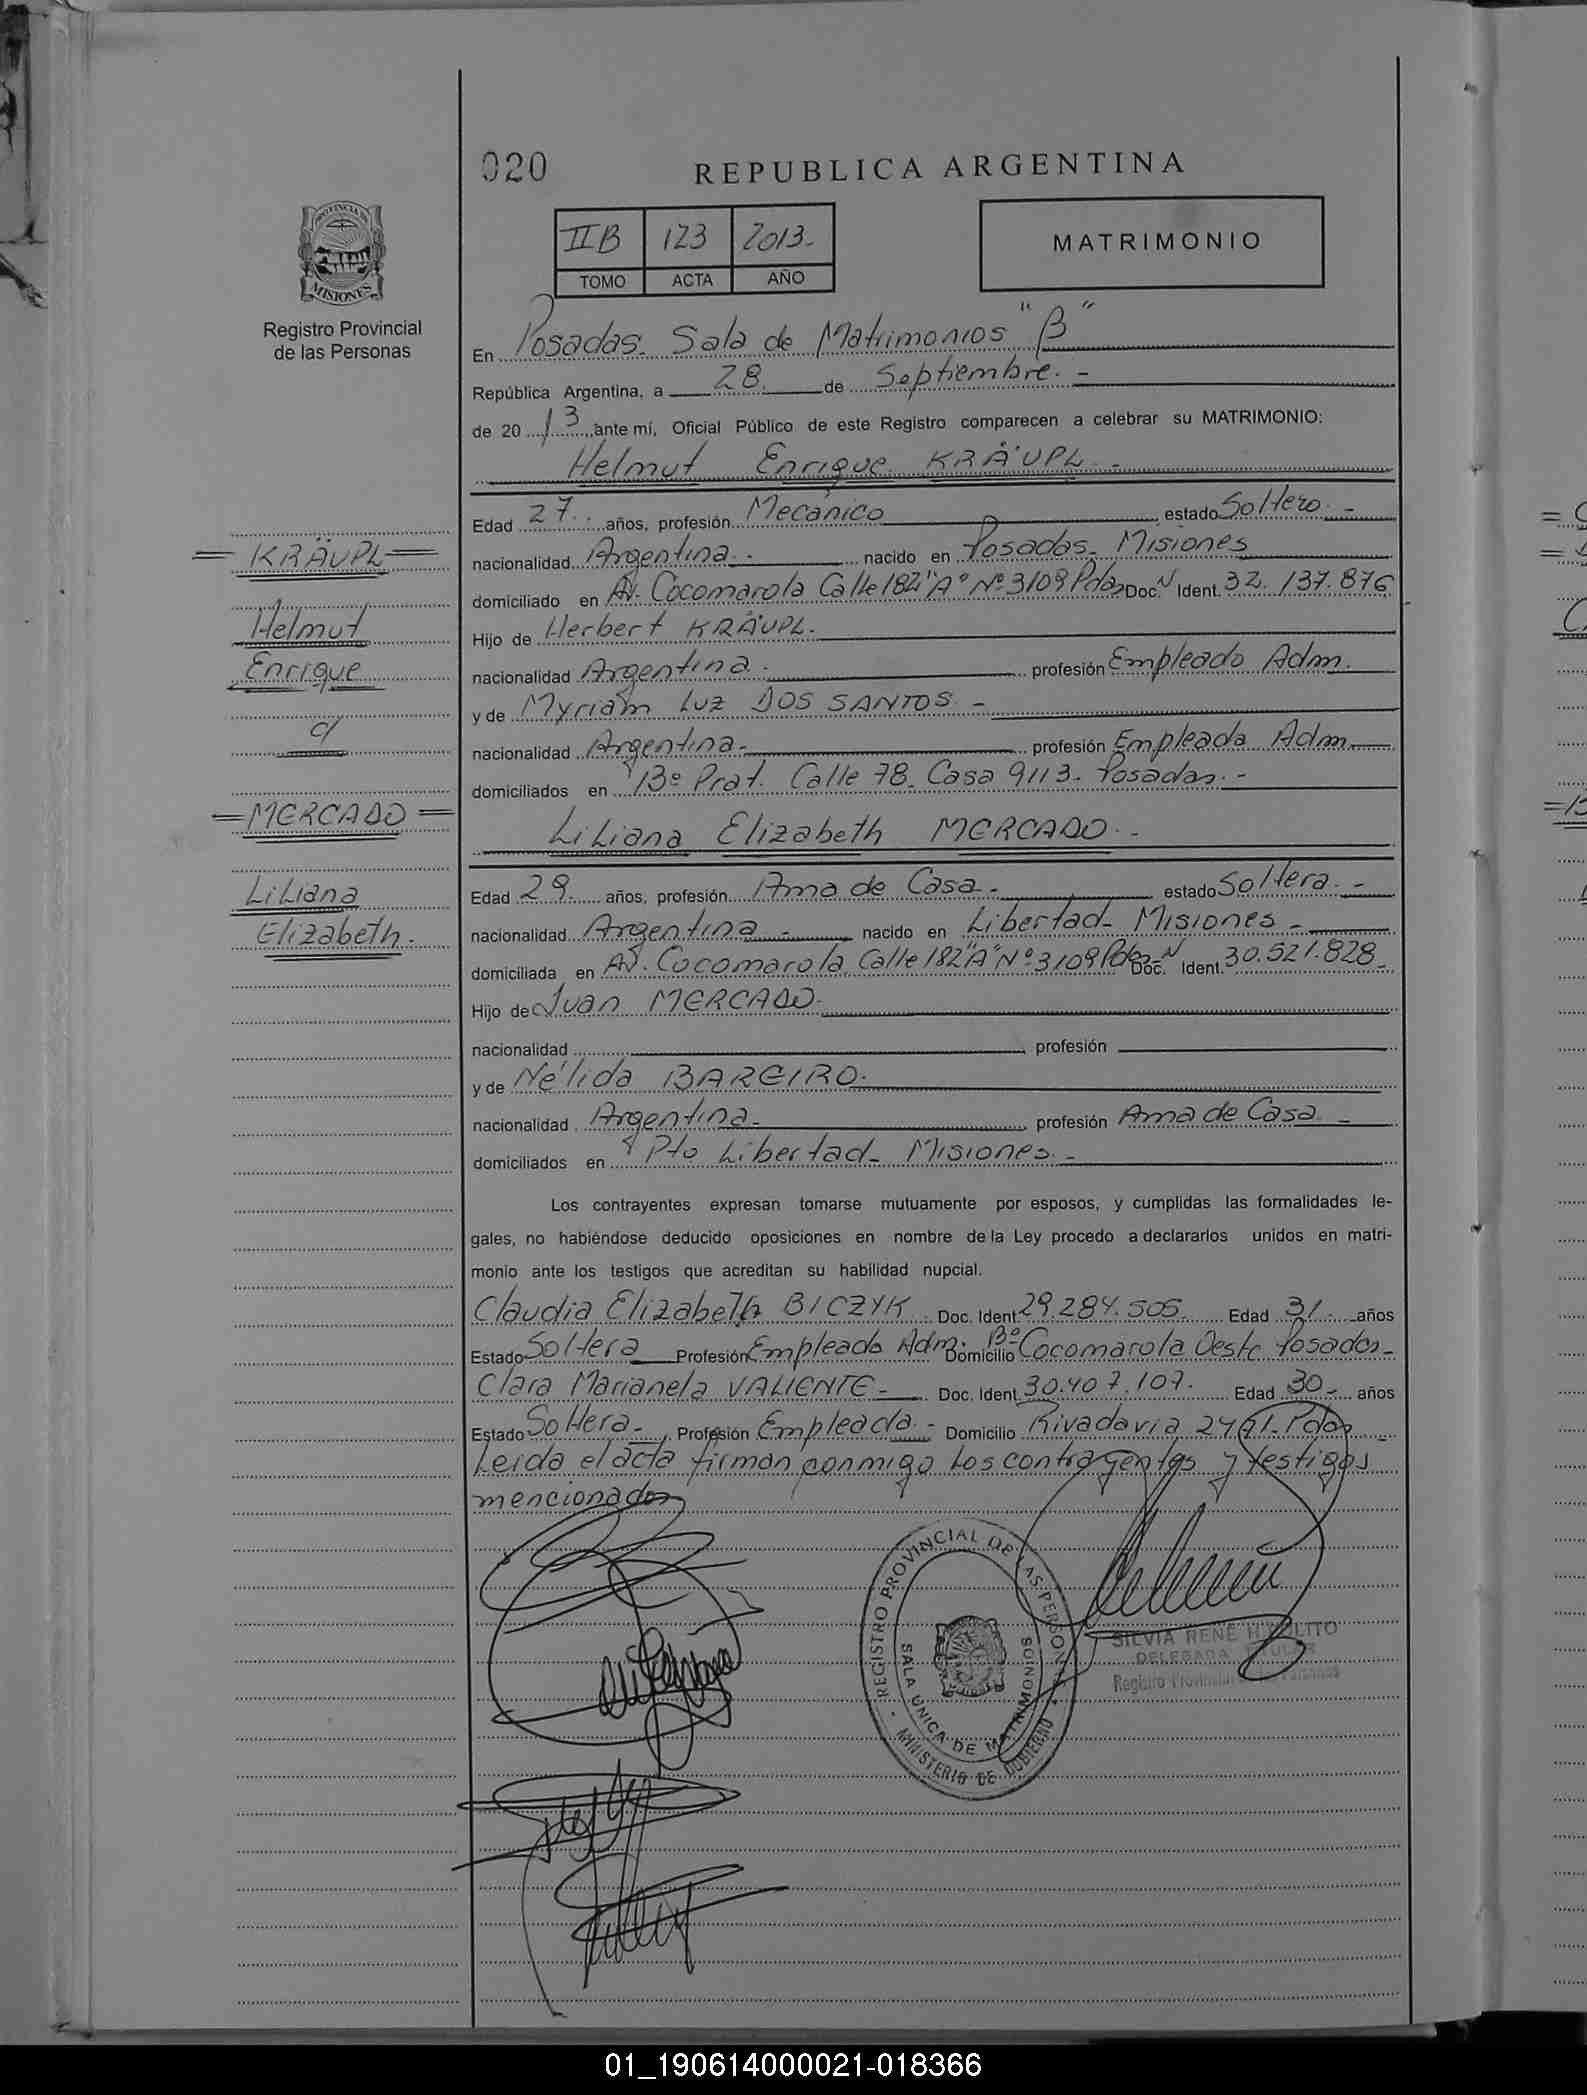 020
REPUBLICA ARGENTINA
PROVINCIA DE
MISIONES
Registro Provincial
de las Personas
IIB 123 2013.-
TOMO ACTA AÑO
MATRIMONIO
En Posadas. Sala de Matrimonios "B"
República Argentina, a 28. de Septiembre. -
de 20 13 ante mí, Oficial Público de este Registro comparecen a celebrar su MATRIMONIO:
Helmut Enrique KRÄUPL. -
Edad 27. años, profesión Mecánico estado Soltero. -
nacionalidad Argentina. - nacido en Posadas- Misiones
domiciliado en Av. Cocomarola Calle 182 "A" Nº 3109 Pdas Doc. N Ident. 32.137.876
Hijo de Herbert KRÄUPL.
nacionalidad Argentina. profesión Empleado Adm.
y de Myriam Luz DOS SANTOS. -
nacionalidad Argentina.- profesión Empleada Adm.
domiciliados en Bº Prat. Calle 78. Casa 9113- Posadas. -
Liliana Elizabeth MERCADO. -
Edad 29. años, profesión Ama de Casa.- estado Soltera. -
nacionalidad Argentina - nacido en Libertad- Misiones -
domiciliada en Av. Cocomarola Calle 182 "A" Nº 3109 Pdas- Doc. N Ident. 30.521.828 -
Hijo de Juan MERCADO.
nacionalidad profesión
y de Nélida BAREIRO.
nacionalidad Argentina.- profesión Ama de Casa. -
domiciliados en Pto Libertad- Misiones. -
Los contrayentes expresan tomarse mutuamente por esposos, y cumplidas las formalidades le-
gales, no habiéndose deducido oposiciones en nombre de la Ley procedo a declararlos unidos en matri-
monio ante los testigos que acreditan su habilidad nupcial.
Claudia Elizabeth BICZYK. Doc. Ident. 29.284.505. Edad 31. años
Estado Soltera Profesión Empleada Adm. Domicilio Bº Cocomarola Oeste Posadas-
Clara Marianela VALIENTE- Doc. Ident. 30.407.107. Edad 30- años
Estado Soltera- Profesión Empleada.- Domicilio Rivadavia 2491- Pdas -
Leida el acta firman conmigo los contrayentes y testigos
mencionados
= KRÄUPL =
Helmut
Enrique
c/
= MERCADO =
Liliana
Elizabeth.
REGISTRO PROVINCIAL DE LAS PERSONAS
SALA UNICA DE MATRIMONIOS
MINISTERIO DE GOBIERNO
SILVIA RENE
DELEGADA TITULAR
Registro Provincial de las Personas
01_190614000021-018366